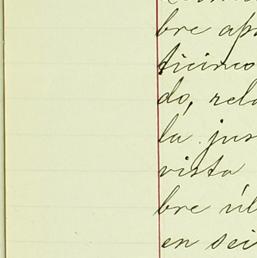 bre apr
ticinco
do, rela
la jus
vista
bre úl
en sei